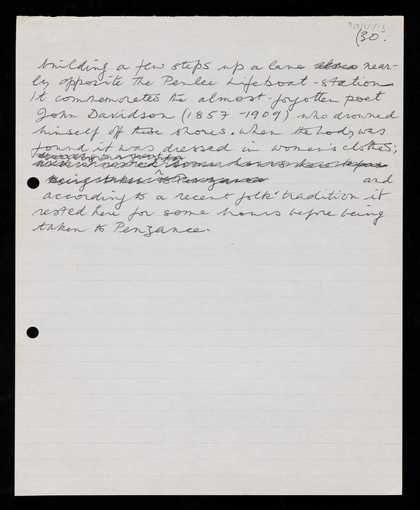 (30.
building a few steps up a lane near-
ly opposite the Penlee Lifeboat-station
It commemorates the almost-forgotten poet
John Davidson (1857-1909) who drowned
himself off these shores. When the body was
found it was dressed in women's clothes;
being taken to Penzance and
according to a recent folk-tradition it
rested here for some hours before being
taken to Penzance.